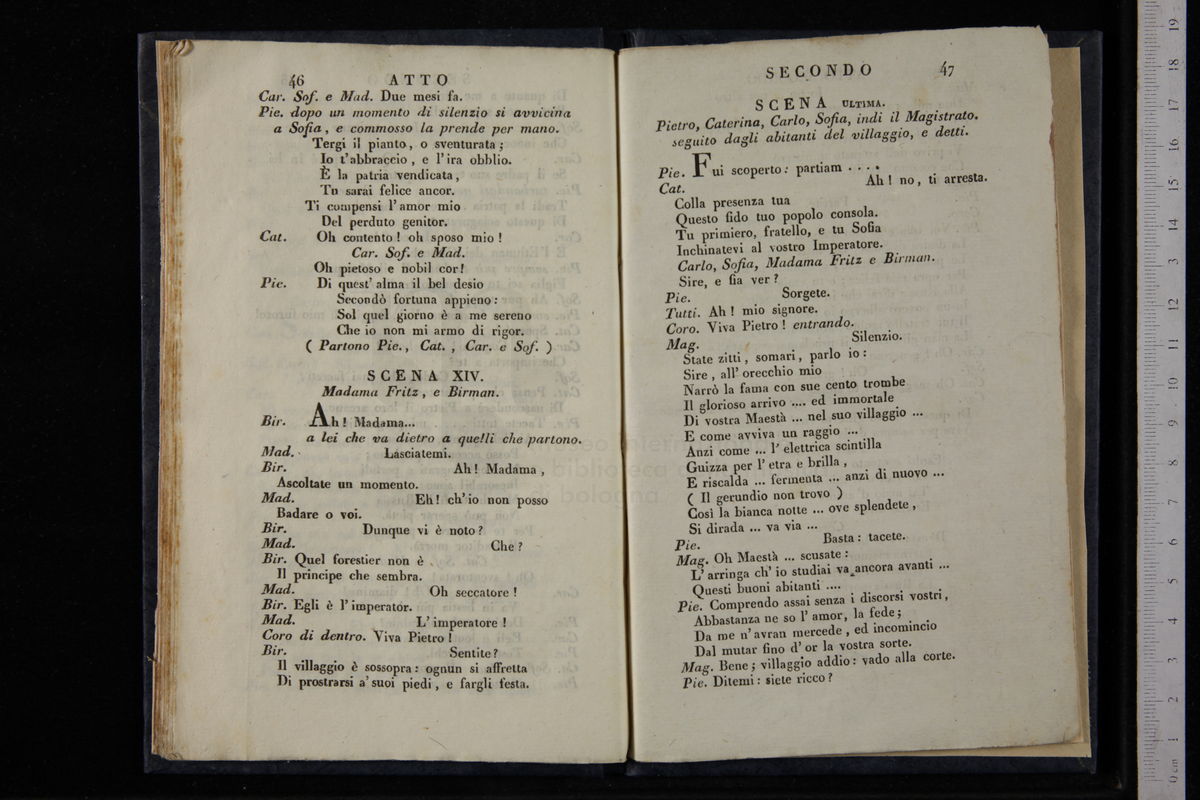 46 ATTO
Car. Sof. e Mad. Due mesi fa.
Pie. dopo un momento di silenzio si avvicina
a Sofia, e commosso la prende per mano.
Tergi il pianto, o sventurata;
Io t'abbraccio, e l'ira obblio.
È la patria vendicata,
Tu sarai felice ancor.
Ti compensi l'amor mio
Del perduto genitor.
Cat. Oh contento! oh sposo mio!
Car. Sof. e Mad.
Oh pietoso e nobil cor!
Pie. Di quest' alma il bel desio
Secondò fortuna appieno:
Sol quel giorno è a me sereno
Che io non mi armo di rigor.
( Partono Pie., Cat., Car. e Sof. )
SCENA XIV.
Madama Fritz, e Birman.
Bir. Ah! Madama...
a lei che va dietro a quelli che partono.
Mad. Lasciatemi.
Bir. Ah! Madama,
Ascoltate un momento.
Mad. Eh! ch'io non posso
Badare o voi.
Bir. Dunque vi è noto?
Mad. Che?
Bir. Quel forestier non è
Il principe che sembra.
Mad. Oh seccatore!
Bir. Egli è l'imperator.
Mad. L'imperatore!
Coro di dentro. Viva Pietro!
Bir. Sentite?
Il villaggio è sossopra: ognun si affretta
Di prostrarsi a'suoi piedi, e fargli festa.
SECONDO 47
SCENA ULTIMA.
Pietro, Caterina, Carlo, Sofia, indi il Magistrato.
seguito dagli abitanti del villaggio, e detti.
Pie. Fui scoperto: partiam ....
Cat. Ah! no, ti arresta.
Colla presenza tua
Questo fido tuo popolo consola.
Tu primiero, fratello, e tu Sofia
Inchinatevi al vostro Imperatore.
Carlo, Sofia, Madama Fritz e Birman.
Sire, e fia ver?
Pie. Sorgete.
Tutti. Ah! mio signore.
Coro. Viva Pietro! entrando.
Mag. Silenzio.
State zitti, somari, parlo io:
Sire, all' orecchio mio
Narrò la fama con sue cento trombe
Il glorioso arrivo .... ed immortale
Di vostra Maestà ... nel suo villaggio ...
E come avviva un raggio ...
Anzi come ... l' elettrica scintilla
Guizza per l' etra e brilla,
E riscalda ... fermenta ... anzi di nuovo ...
( Il gerundio non trovo )
Così la bianca notte ... ove splendete,
Si dirada ... va via ...
Pie. Basta: tacete.
Mag. Oh Maestà ... scusate:
L' arringa ch' io studiai va ancora avanti ...
Questi buoni abitanti ....
Pie. Comprendo assai senza i discorsi vostri,
Abbastanza ne so l' amor, la fede;
Da me n'avran mercede, ed incomincio
Dal mutar fino d' or la vostra sorte.
Mag. Bene; villaggio addio: vado alla corte.
Pie. Ditemi: siete ricco?